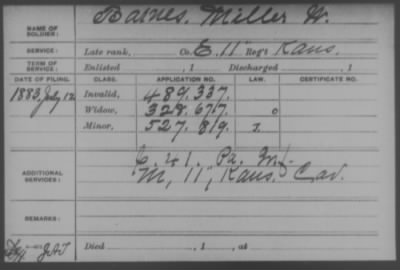 NAME OF SOLDIER: Barnes, Miller W.
SERVICE: Late rank, Co. E, 11" Reg't Kans.
TERM OF SERVICE: Enlisted , 1 Discharged , 1
DATE OF FILING. CLASS. APPLICATION NO. LAW. CERTIFICATE NO.
1883, July 12 Invalid, 489.337.
Widow, 328.677. 0
Minor, 527.819. Z.
ADDITIONAL SERVICES: C. 41. Pa. Inf.
M, 11", Kans. Cav.
REMARKS:
Died , 1 , at